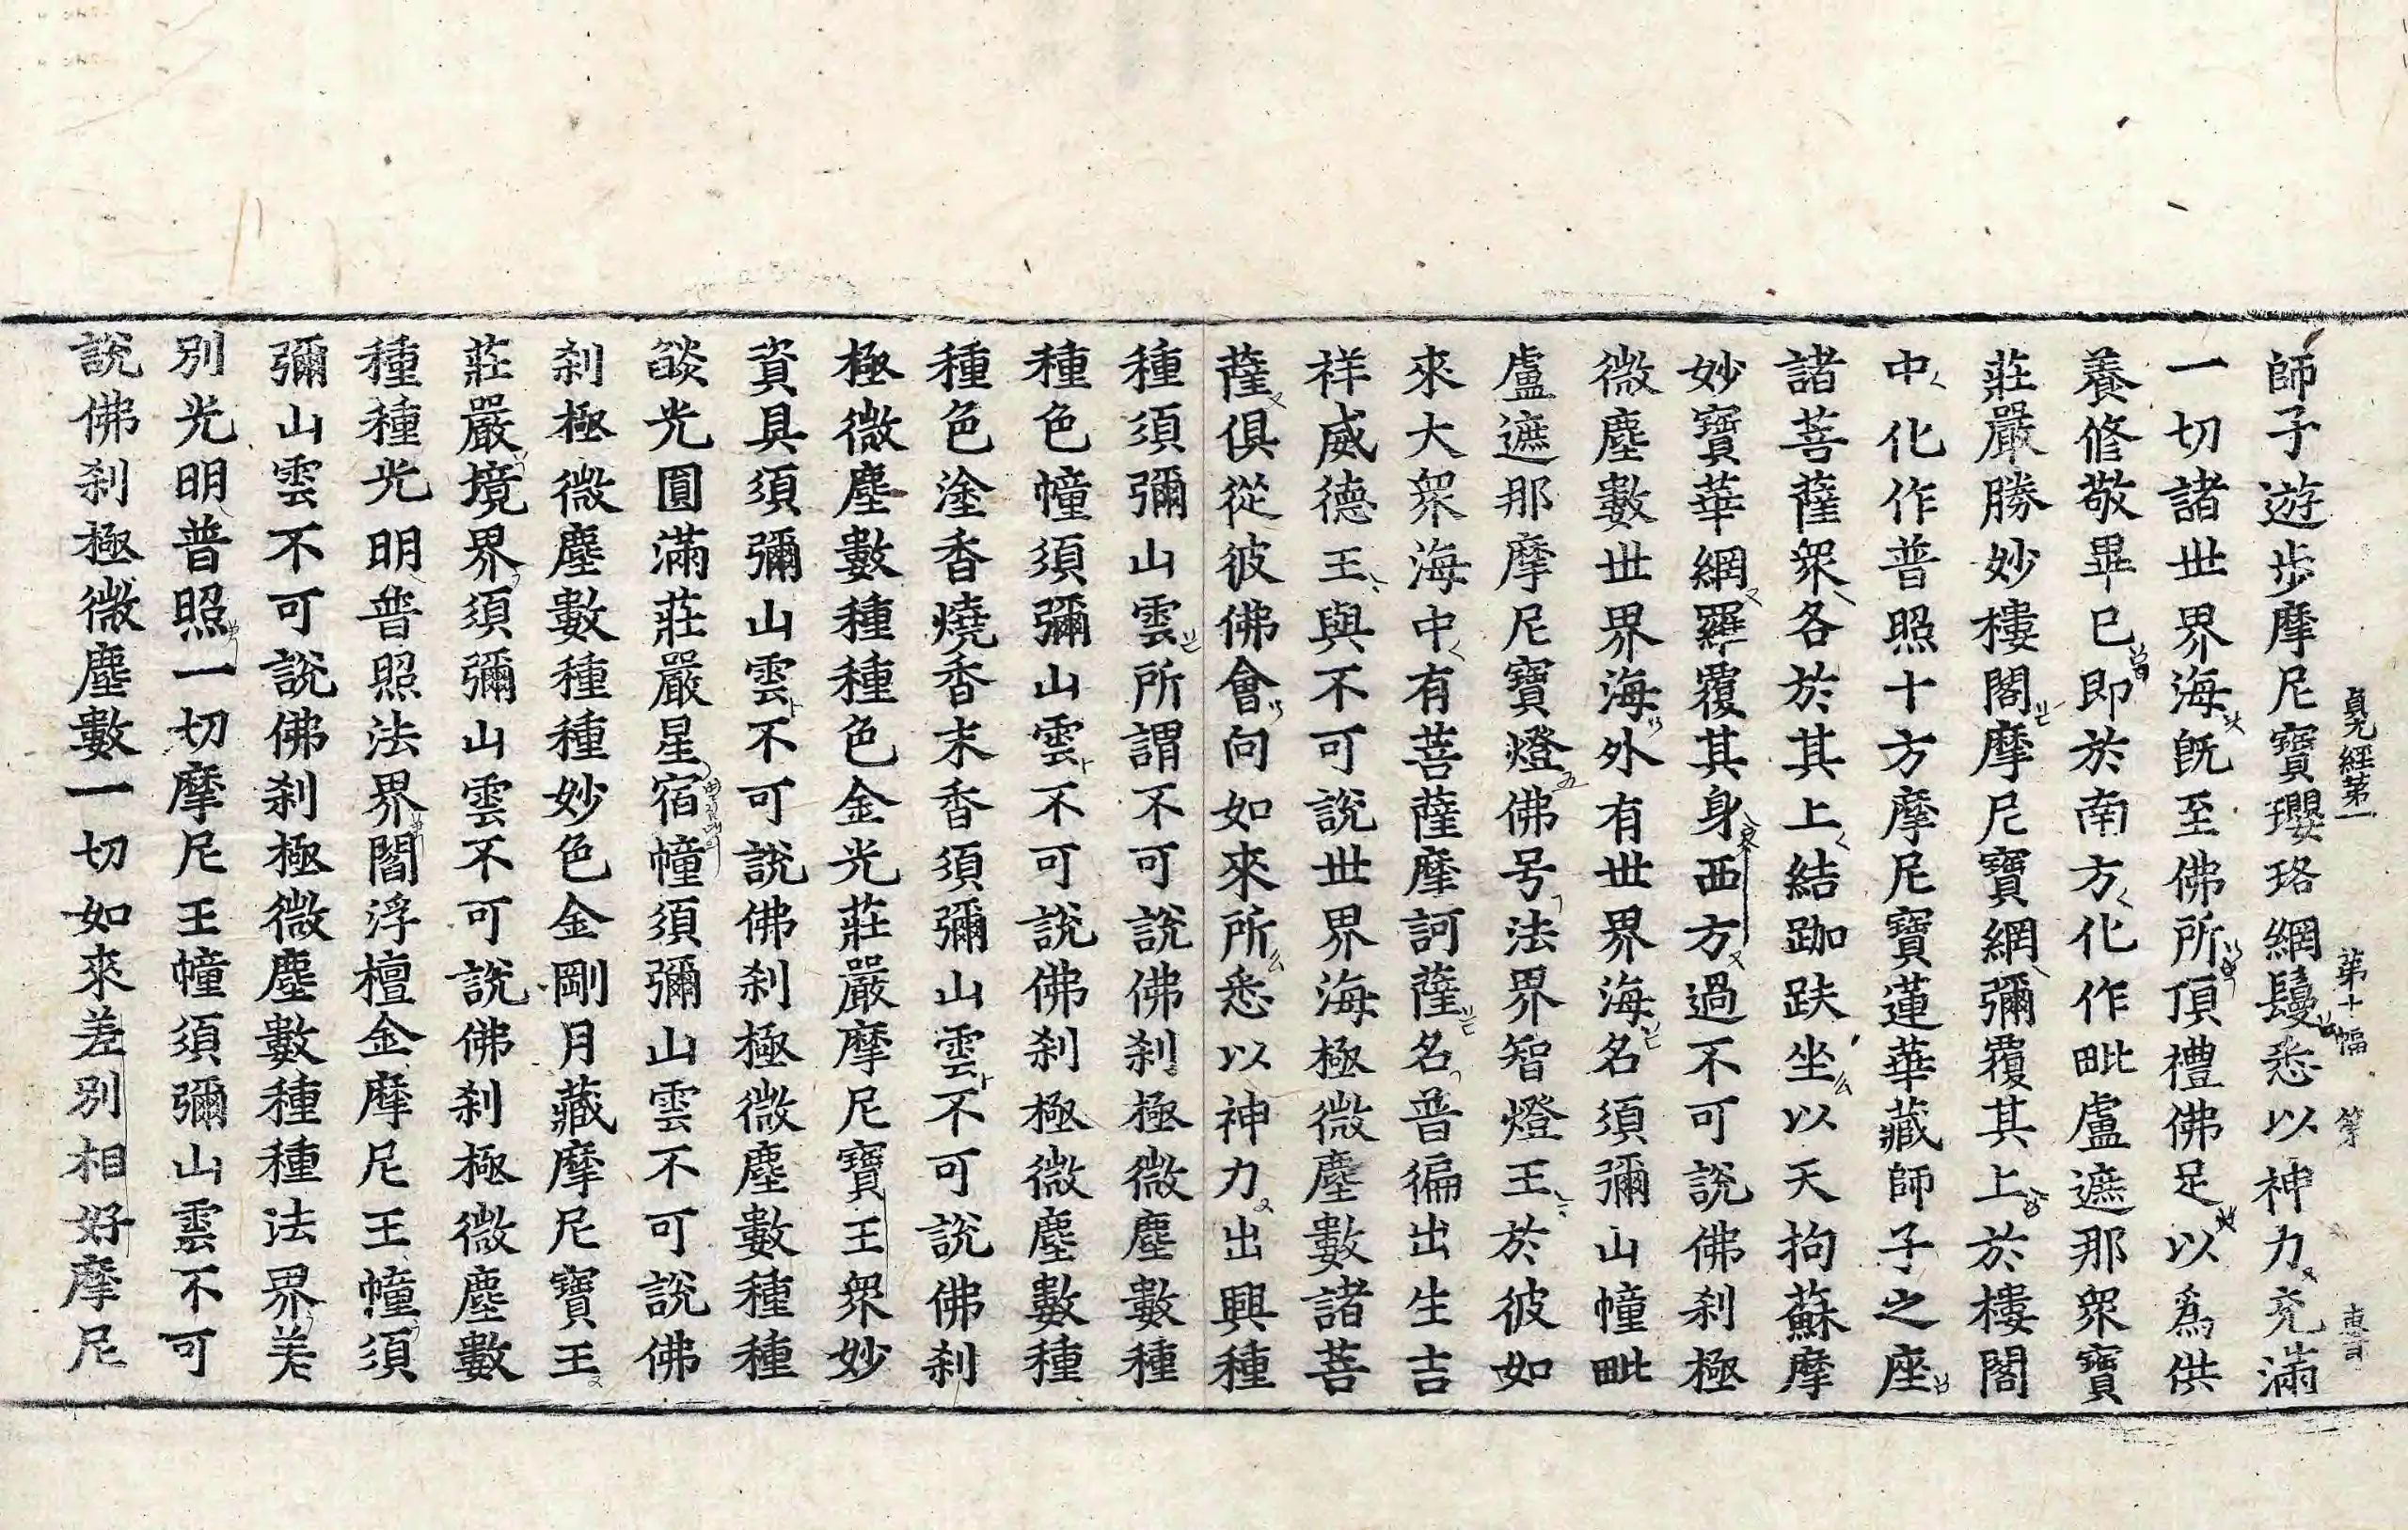 貞元經第一 第十幅
師子遊步摩尼寶瓔珞網鬘悉以神力充滿
一切諸世界海既至佛所頂禮佛足以為供
養修敬畢已即於南方化作毗盧遮那衆寶
莊嚴勝妙樓閣摩尼寶網彌覆其上於樓閣
中化作普照十方摩尼寶蓮華藏師子之座
諸菩薩衆各於其上結跏趺坐以天拘蘇摩
妙寶華網羅覆其身西方過不可說佛刹極
微塵數世界海外有世界海名須彌山幢毗
盧遮那摩尼寶燈佛号法界智燈王於彼如
來大衆海中有菩薩摩訶薩名普徧出生吉
祥威德王與不可說世界海極微塵數諸菩
薩俱從彼佛會向如來所悉以神力出興種
種須彌山雲所謂不可說佛刹極微塵數種
種色幢須彌山雲不可說佛刹極微塵數種
種色塗香燒香末香須彌山雲不可說佛刹
極微塵數種種色金光莊嚴摩尼寶王衆妙
資具須彌山雲不可說佛刹極微塵數種種
燄光圓滿莊嚴星宿幢須彌山雲不可說佛
刹極微塵數種種妙色金剛月藏摩尼寶王
莊嚴境界須彌山雲不可說佛刹極微塵數
種種光明普照法界閻浮檀金摩尼王幢須
彌山雲不可說佛刹極微塵數種種法界差
別光明普照一切摩尼王幢須彌山雲不可
說佛刹極微塵數一切如來差別相好摩尼